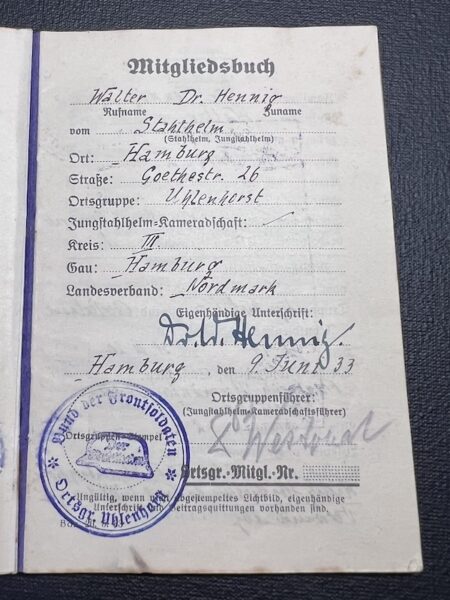 Mitgliedsbuch
Walter Dr. Hennig
Rufname Zuname
vom Stahlhelm
(Stahlhelm, Jungstahlhelm)
Ort: Hamburg
Straße: Goethestr. 26
Ortsgruppe: Uhlenhorst
Jungstahlhelm-Kameradschaft:
Kreis: III
Gau: Hamburg
Landesverband: Nordmark
Eigenhändige Unterschrift:
Dr. W. Hennig.
Hamburg, den 9. Juni 33
Ortsgruppenführer:
(Jungstahlhelm-Kameradschaftsführer)
Ortsgruppen-Stempel
Bund der Frontsoldaten
Der
Stahlhelm
Ortsgr. Uhlenhorst
Ortsgr.-Mitgl.-Nr.
Ungültig, wenn nicht abgestempeltes Lichtbild, eigenhändige
Unterschrift und Beitragsquittungen vorhanden sind.